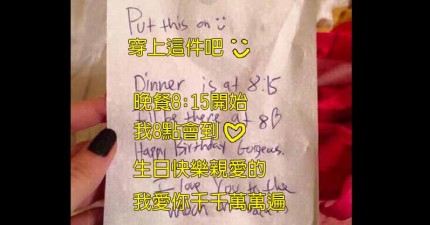 Put this on
穿上這件吧
Dinner is at 8:15
晚餐8:15開始
be there at 8
我8點會到
Happy Birthday Gorgeous.
生日快樂親愛的
I love You to the
我愛你千千萬萬遍